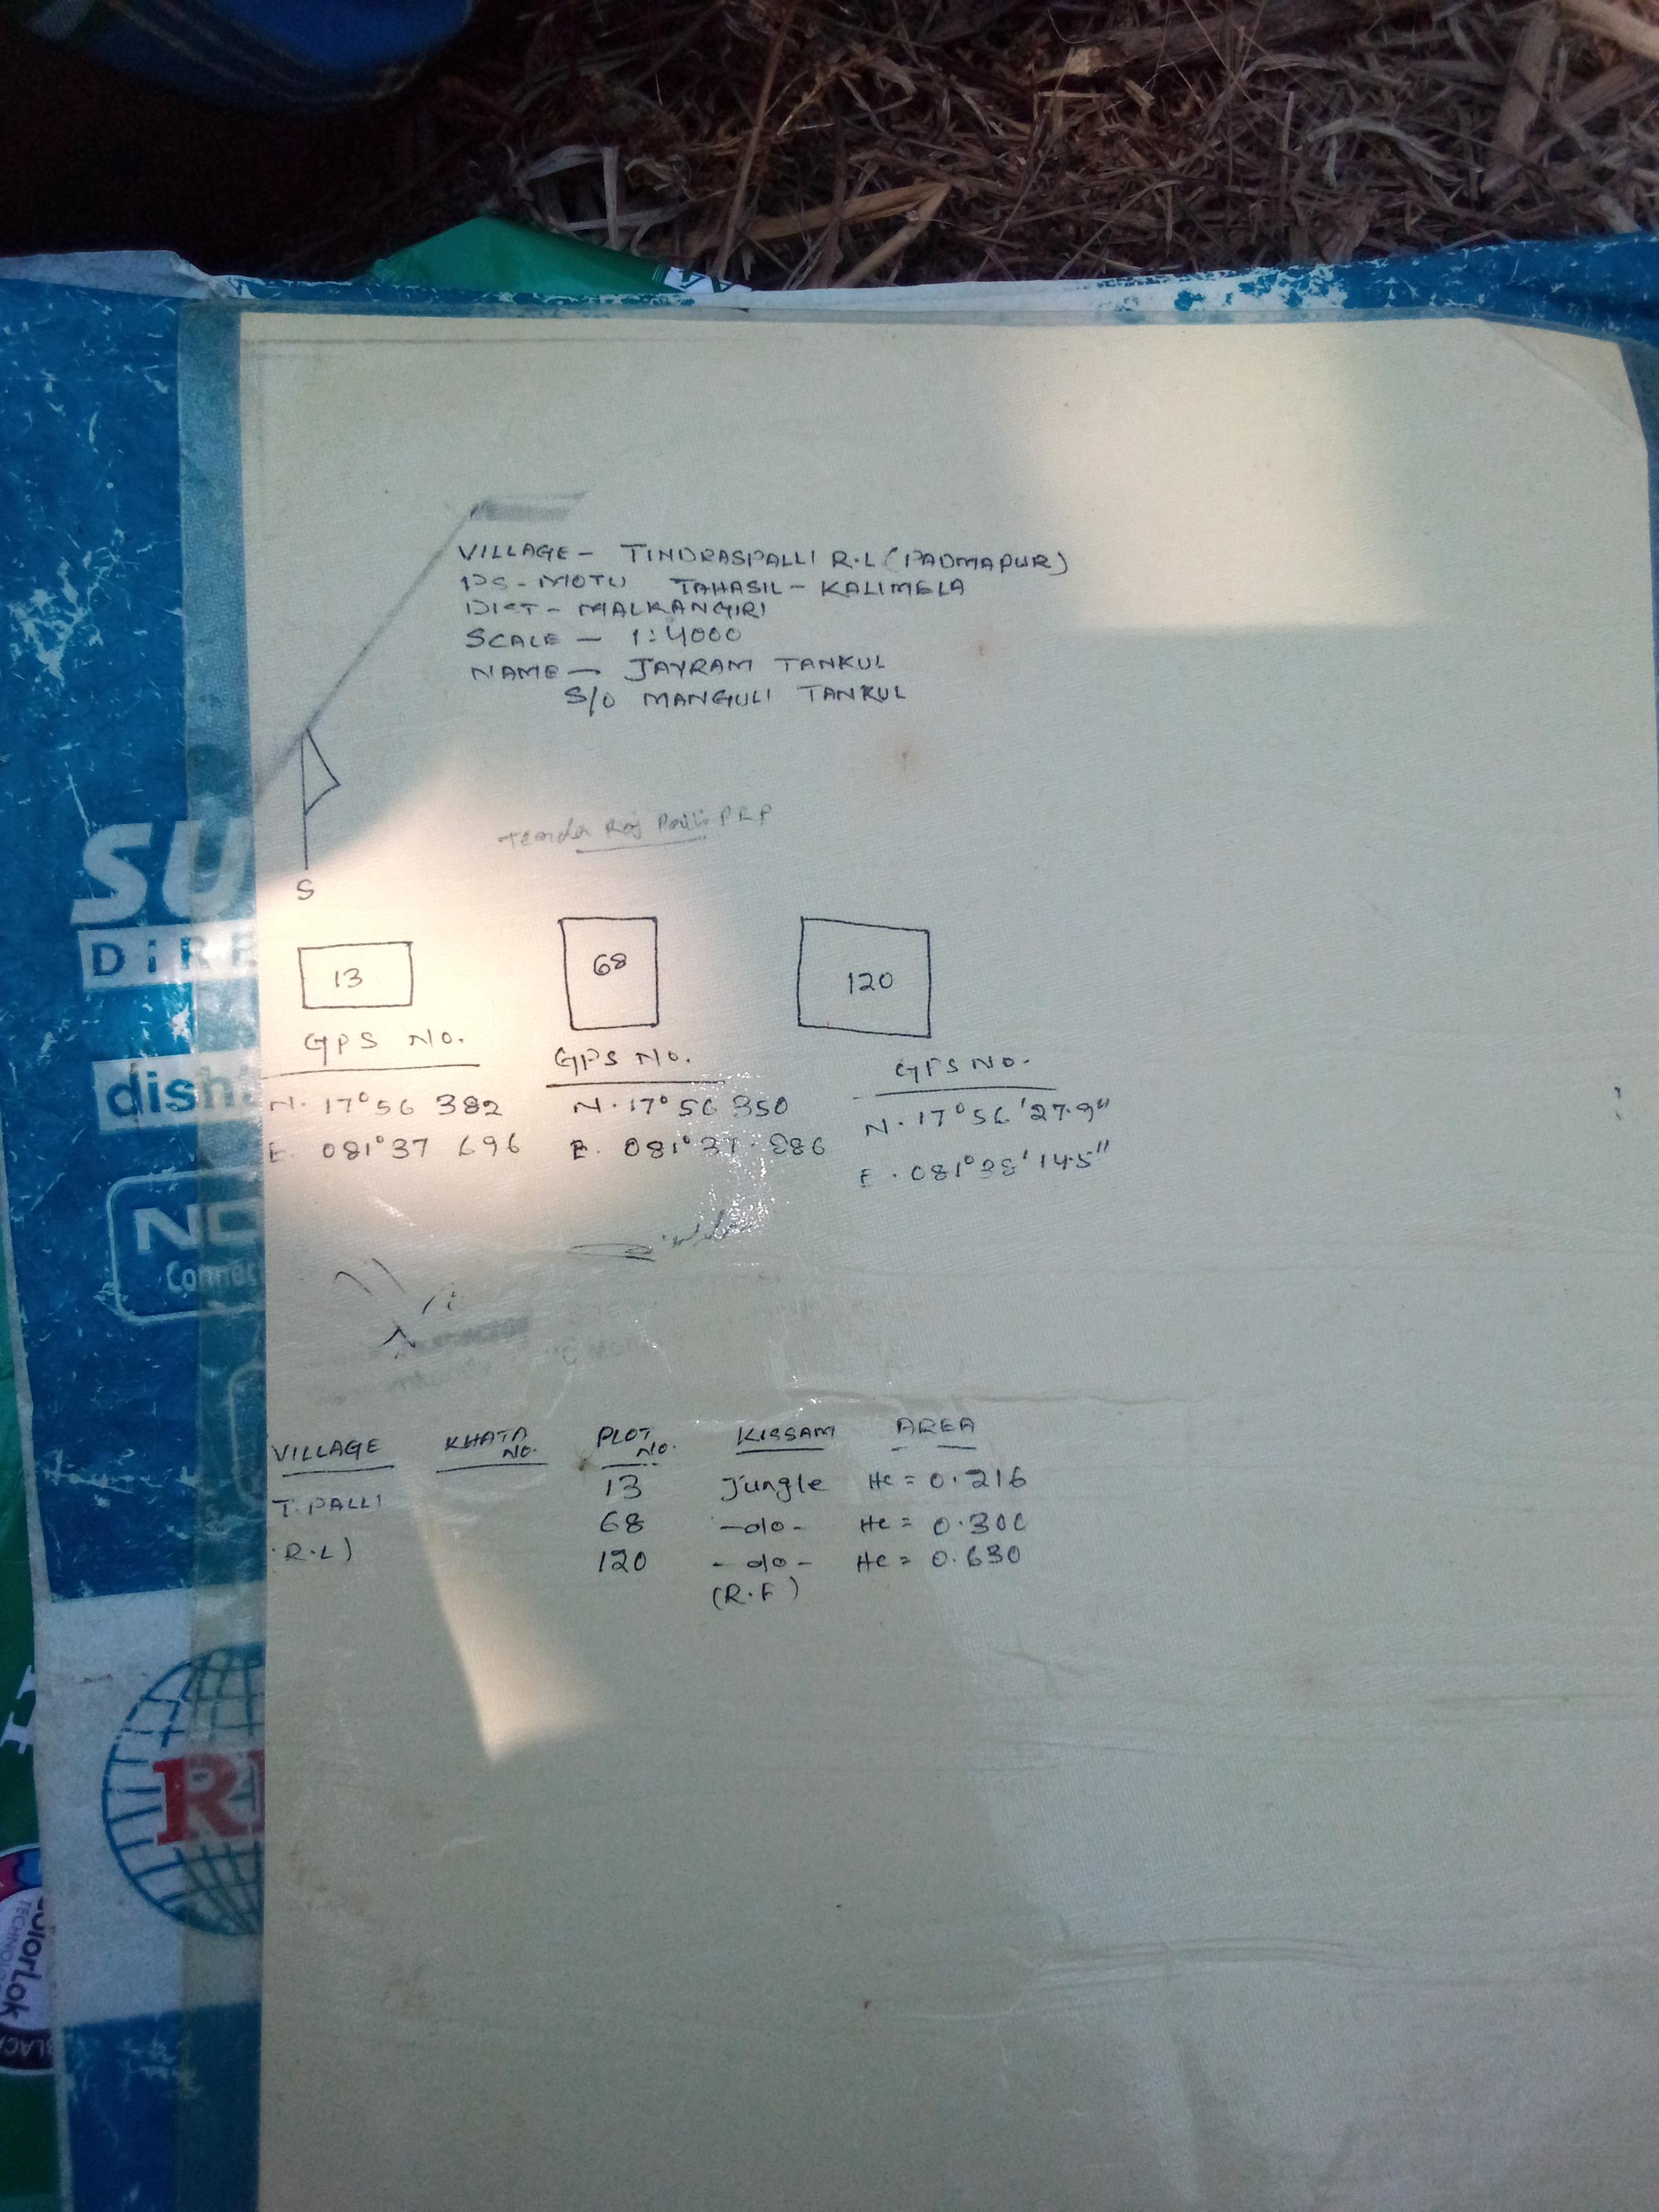 VILLAGE - TINDRASPALLI R.L (PADMAPUR)
PS - MOTU TAHASIL - KALIMELA
DIST - MALKANGIRI
SCALE - 1:4000
NAME - JAYRAM TANKUL
S/O MANGULI TANKUL
S
13
68
120
GPS NO.
GPS NO.
GPS NO.
N. 17°56 382
N. 17°56 350
N. 17°56'27.9"
E. 081°37 696
E. 081°37
E. 081°38'14.5"
VILLAGE KHATA NO. PLOT NO. KISSAM AREA
T. PALLI 13 Jungle Hc = 0.216
68 -do- Hc = 0.300
R.L) 120 -do- Hc = 0.630
(R.F)
SU
DiRE
dish
Connec
colorlok